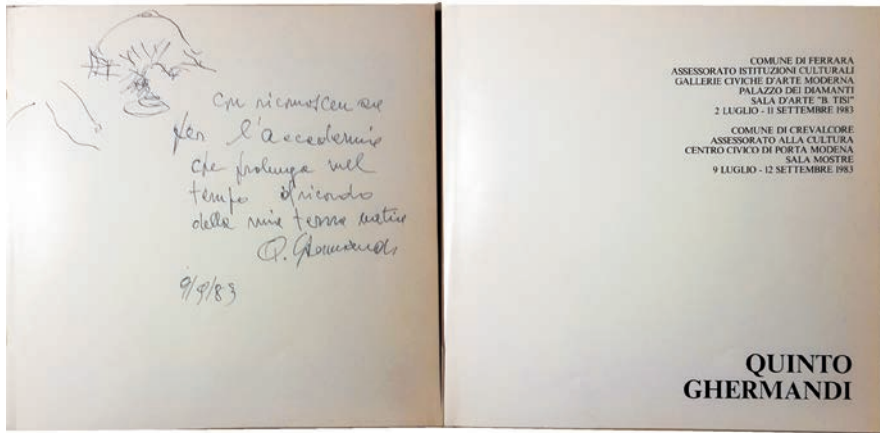 con riconoscenza
per l'accademia
che prolunga nel
tempo il ricordo
della mia terra natia
Q. Ghermandi
9/9/83
COMUNE DI FERRARA
ASSESSORATO ISTITUZIONI CULTURALI
GALLERIE CIVICHE D'ARTE MODERNA
PALAZZO DEI DIAMANTI
SALA D'ARTE "B. TISI"
2 LUGLIO - 11 SETTEMBRE 1983
COMUNE DI CREVALCORE
ASSESSORATO ALLA CULTURA
CENTRO CIVICO DI PORTA MODENA
SALA MOSTRE
9 LUGLIO - 12 SETTEMBRE 1983
QUINTO
GHERMANDI